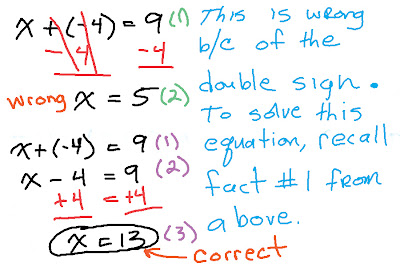 x + (-4) = 9 (1)
- 4 -4
wrong x = 5 (2)
x + (-4) = 9 (1)
x - 4 = 9 (2)
+4 = +4
x = 13 (3)
correct
This is wrong
b/c of the
double sign.
To solve this
equation, recall
fact #1 from
above.